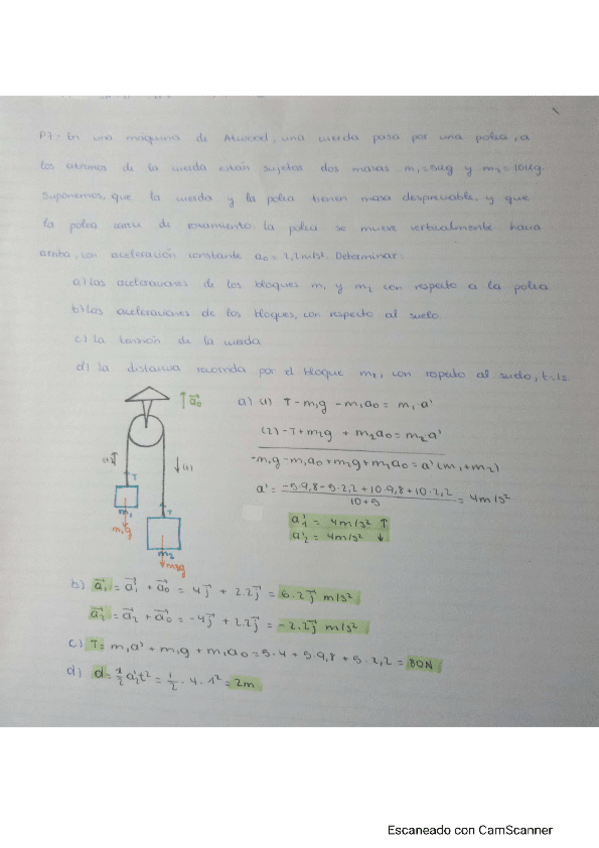 P7- En una máquina de Atwood, una cuerda pasa por una polea, a
los extremos de la cuerda están sujetos dos masas m₁=5kg y m₂=10kg.
Suponemos, que la cuerda y la polea tienen masa despreciable, y que
la polea carece de rozamiento. La polea se mueve verticalmente hacia
arriba, con aceleración constante a₀= 2,2m/s². Determinar:
a) Las aceleraciones de los bloques m₁ y m₂ con respecto a la polea
b) Las aceleraciones de los bloques, con respecto al suelo.
c) La tensión de la cuerda
d) La distancia recorrida por el bloque m₂, con respecto al suelo, t=1s.
↑a⃗₀
(+)↑
↓(+)
T
T
m₁
m₁g
m₂
m₂g
a) (1) T - m₁g - m₁a₀ = m₁·a'
(2) -T + m₂g + m₂a₀ = m₂a'
-m₁g - m₁a₀ + m₂g + m₂a₀ = a'(m₁+m₂)
a' = (-5·9,8 - 5·2,2 + 10·9,8 + 10·2,2)/(10+5) = 4m/s²
a'₁ = 4m/s² ↑
a'₂ = 4m/s² ↓
b) a⃗₁ = a⃗'₁ + a⃗₀ = 4j⃗ + 2.2j⃗ = 6.2j⃗ m/s²
a⃗₂ = a⃗'₂ + a⃗₀ = -4j⃗ + 2.2j⃗ = -2.2j⃗ m/s²
c) T = m₁a' + m₁g + m₁a₀ = 5·4 + 5·9,8 + 5·2,2 = 80N
d) d = ½a'₂t² = ½·4·1² = 2m
Escaneado con CamScanner